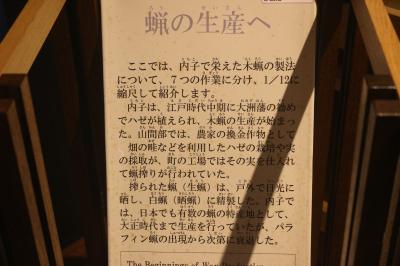 蝋の生産へ
ここでは、内子で栄えた木蝋の製法
について、7つの作業に分け、1/12に
縮尺して紹介します。
内子は、江戸時代中期に大洲藩の勧め
でハゼが植えられ、木蝋の生産が始まっ
た。山間部では、農家の換金作物として
畑の畦などを利用したハゼの栽培や実
の採取が、町の工場ではその実を仕入れ
て蝋搾りが行われていた。
搾られた蝋（生蝋）は、戸外で日光に
晒し、白蝋（晒蝋）に精製した。内子で
は、日本でも有数の蝋の特産地として、
大正時代まで生産を行っていたが、パラ
フィン蝋の出現から次第に衰退した。
The Beginnings of Wax Production